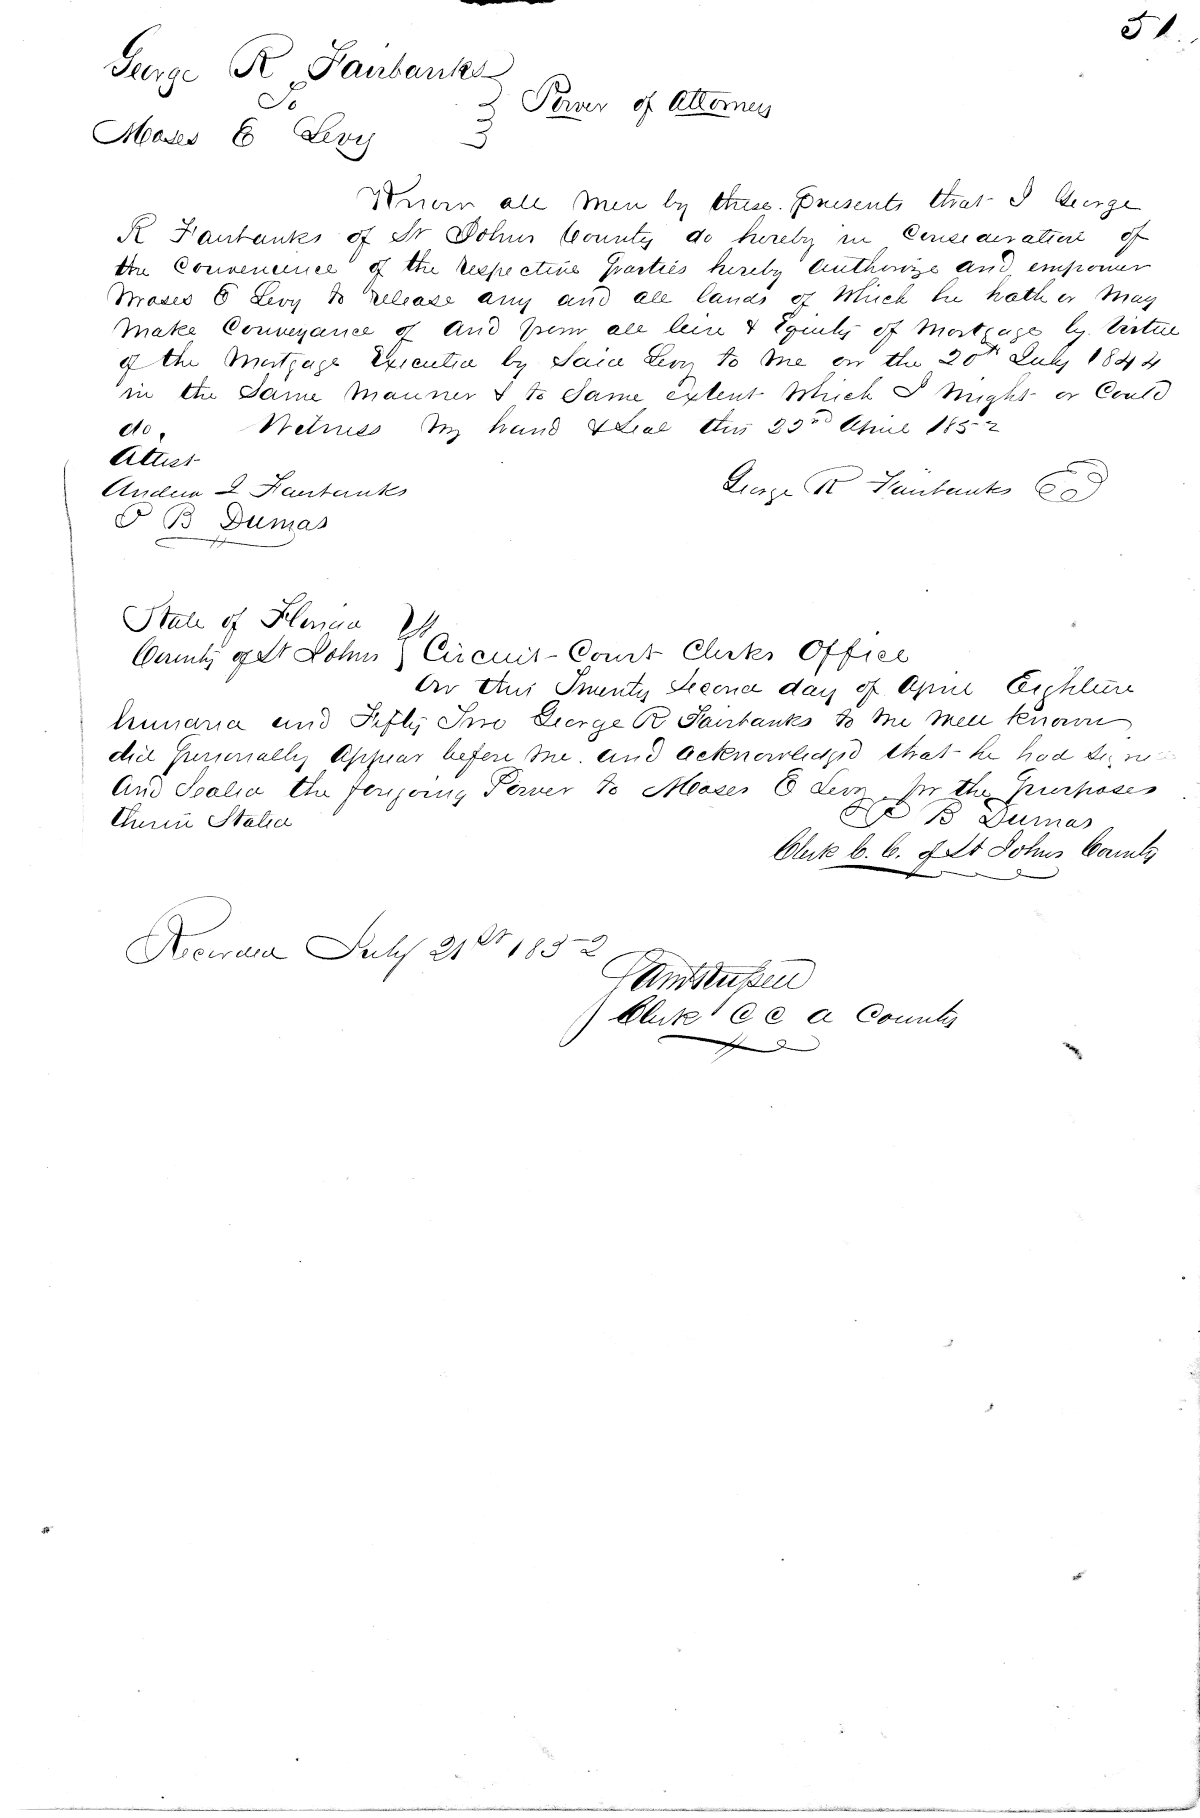 51
George R Fairbanks
To
Moses E Levy
Power of Attorney
Know all Men by these presents that I George
R Fairbanks of St Johns County do hereby in Consideration of
the Convenience of the respective parties hereby authorize and empower
Moses E Levy to release any and all lands of which he hath or may
make Conveyance of and from all lien & Equity of Mortgage by Virtue
of the Mortgage Executed by Said Levy to me on the 20th July 1844
in the Same manner & to Same extent which I might or Could
do. Witness my hand & Seal this 22nd April 1852
Attest
Fairbanks
George R Fairbanks
P B Dumas
State of Florida
County of St Johns } Circuit Court Clerks Office
On this Twenty Second day of April Eighteen
hundred and Fifty Two George R Fairbanks to me well known
did personally appear before me and acknowledged that he had signe
and Sealed the foregoing Power to Moses E Levy for the purposes
therein Stated
P B Dumas
Clerk C. C. of St Johns County
Recorded July 21st 1852
Clerk C C A County